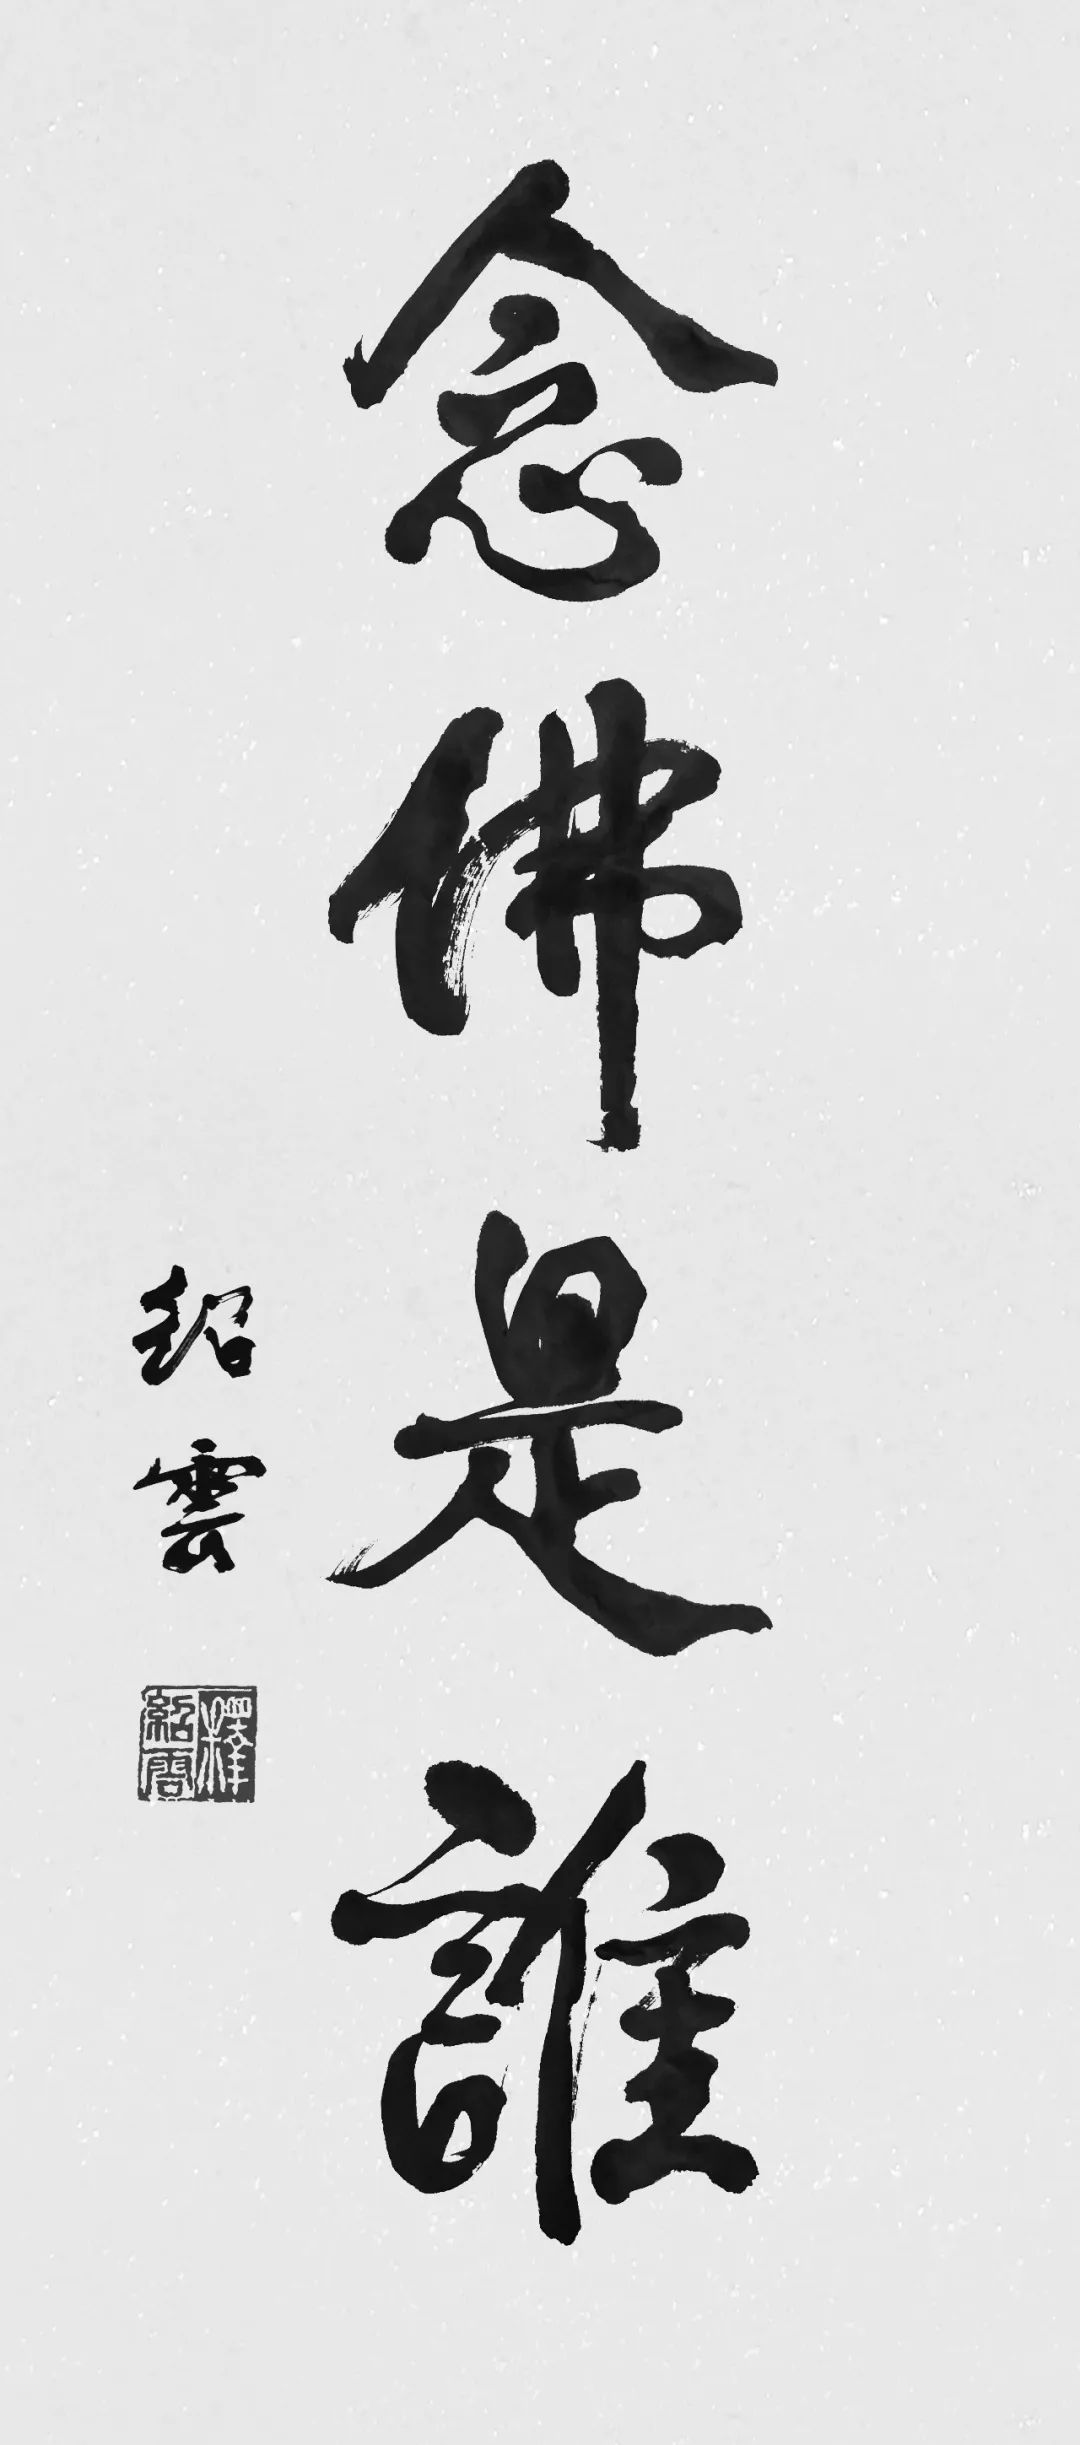 念佛是誰
紹雲
釋紹雲